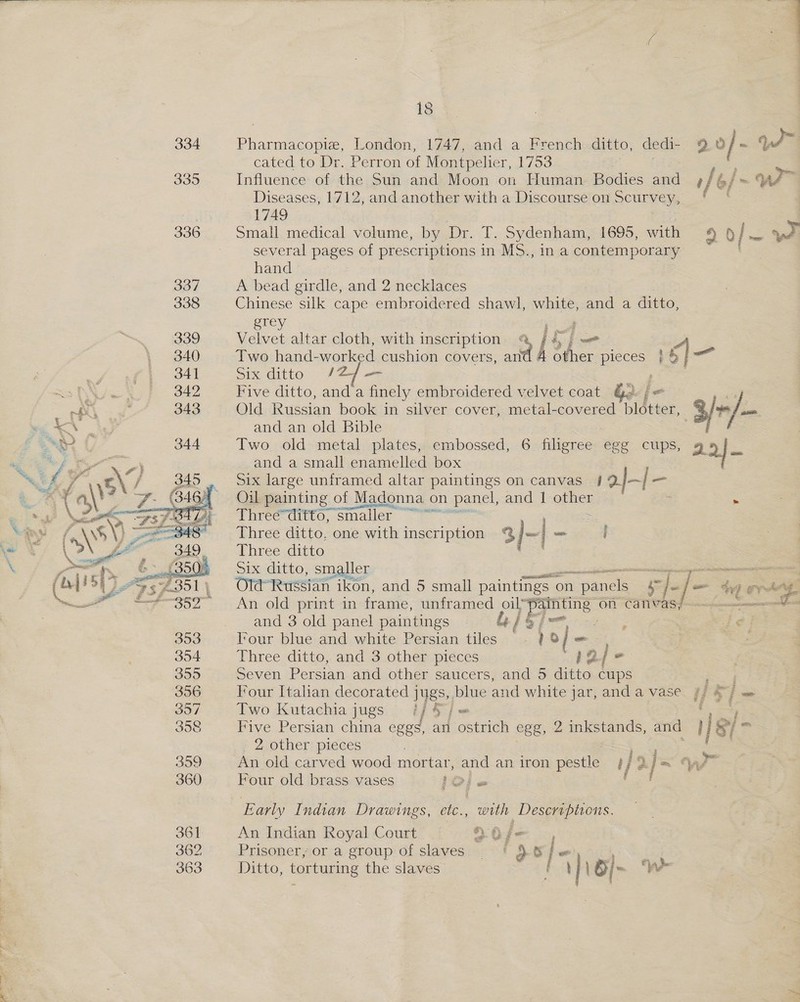 18
334 Pharmacopiæ, London, 1747, and a French ditto, dedi- 20/- W
cated to Dr. Perron of Montpelier, 1753
335 Influence of the Sun and Moon on Human Bodies and 1/6/- W
Diseases, 1712, and another with a Discourse on Scurvey,
1749
336 Small medical volume, by Dr. T. Sydenham, 1695, with 20/- W
several pages of prescriptions in MS., in a contemporary
hand
337 A bead girdle, and 2 necklaces
338 Chinese silk cape embroidered shawl, white, and a ditto,
grey
339 Velvet altar cloth, with inscription
340 Two hand-worked cushion covers, and 4 other pieces 15/-
341 Six ditto 12/-
342 Five ditto, and a finely embroidered velvet coat
343 Old Russian book in silver cover, metal-covered blotter, 3/-/-
and an old Bible
344 Two old metal plates, embossed, 6 filigree egg cups, 22/-
and a small enamelled box
345 Six large unframed altar paintings on canvas 12/-/-
346 Oil painting of Madonna on panel, and 1 other
347 Three ditto, smaller
348 Three ditto, one with inscription 3/-/-
349 Three ditto
350 Six ditto, smaller
351 Old Russian ikon, and 5 small paintings on panels 5/-/-
352 An old print in frame, unframed oil painting on canvas,
and 3 old panel paintings 4/5/-
353 Four blue and white Persian tiles 10/-
354 Three ditto, and 3 other pieces 12/-
355 Seven Persian and other saucers, and 5 ditto cups
356 Four Italian decorated jugs, blue and white jar, and a vase 1/5/-
357 Two Kutachia jugs 1/5/-
358 Five Persian china eggs, an ostrich egg, 2 inkstands, and 1/8/-
2 other pieces
359 An old carved wood mortar, and an iron pestle 1/2/- W
360 Four old brass vases 10/-
Early Indian Drawings, etc., with Descriptions.
361 An Indian Royal Court 20/-
362 Prisoner, or a group of slaves
363 Ditto, torturing the slaves 1/10/- W